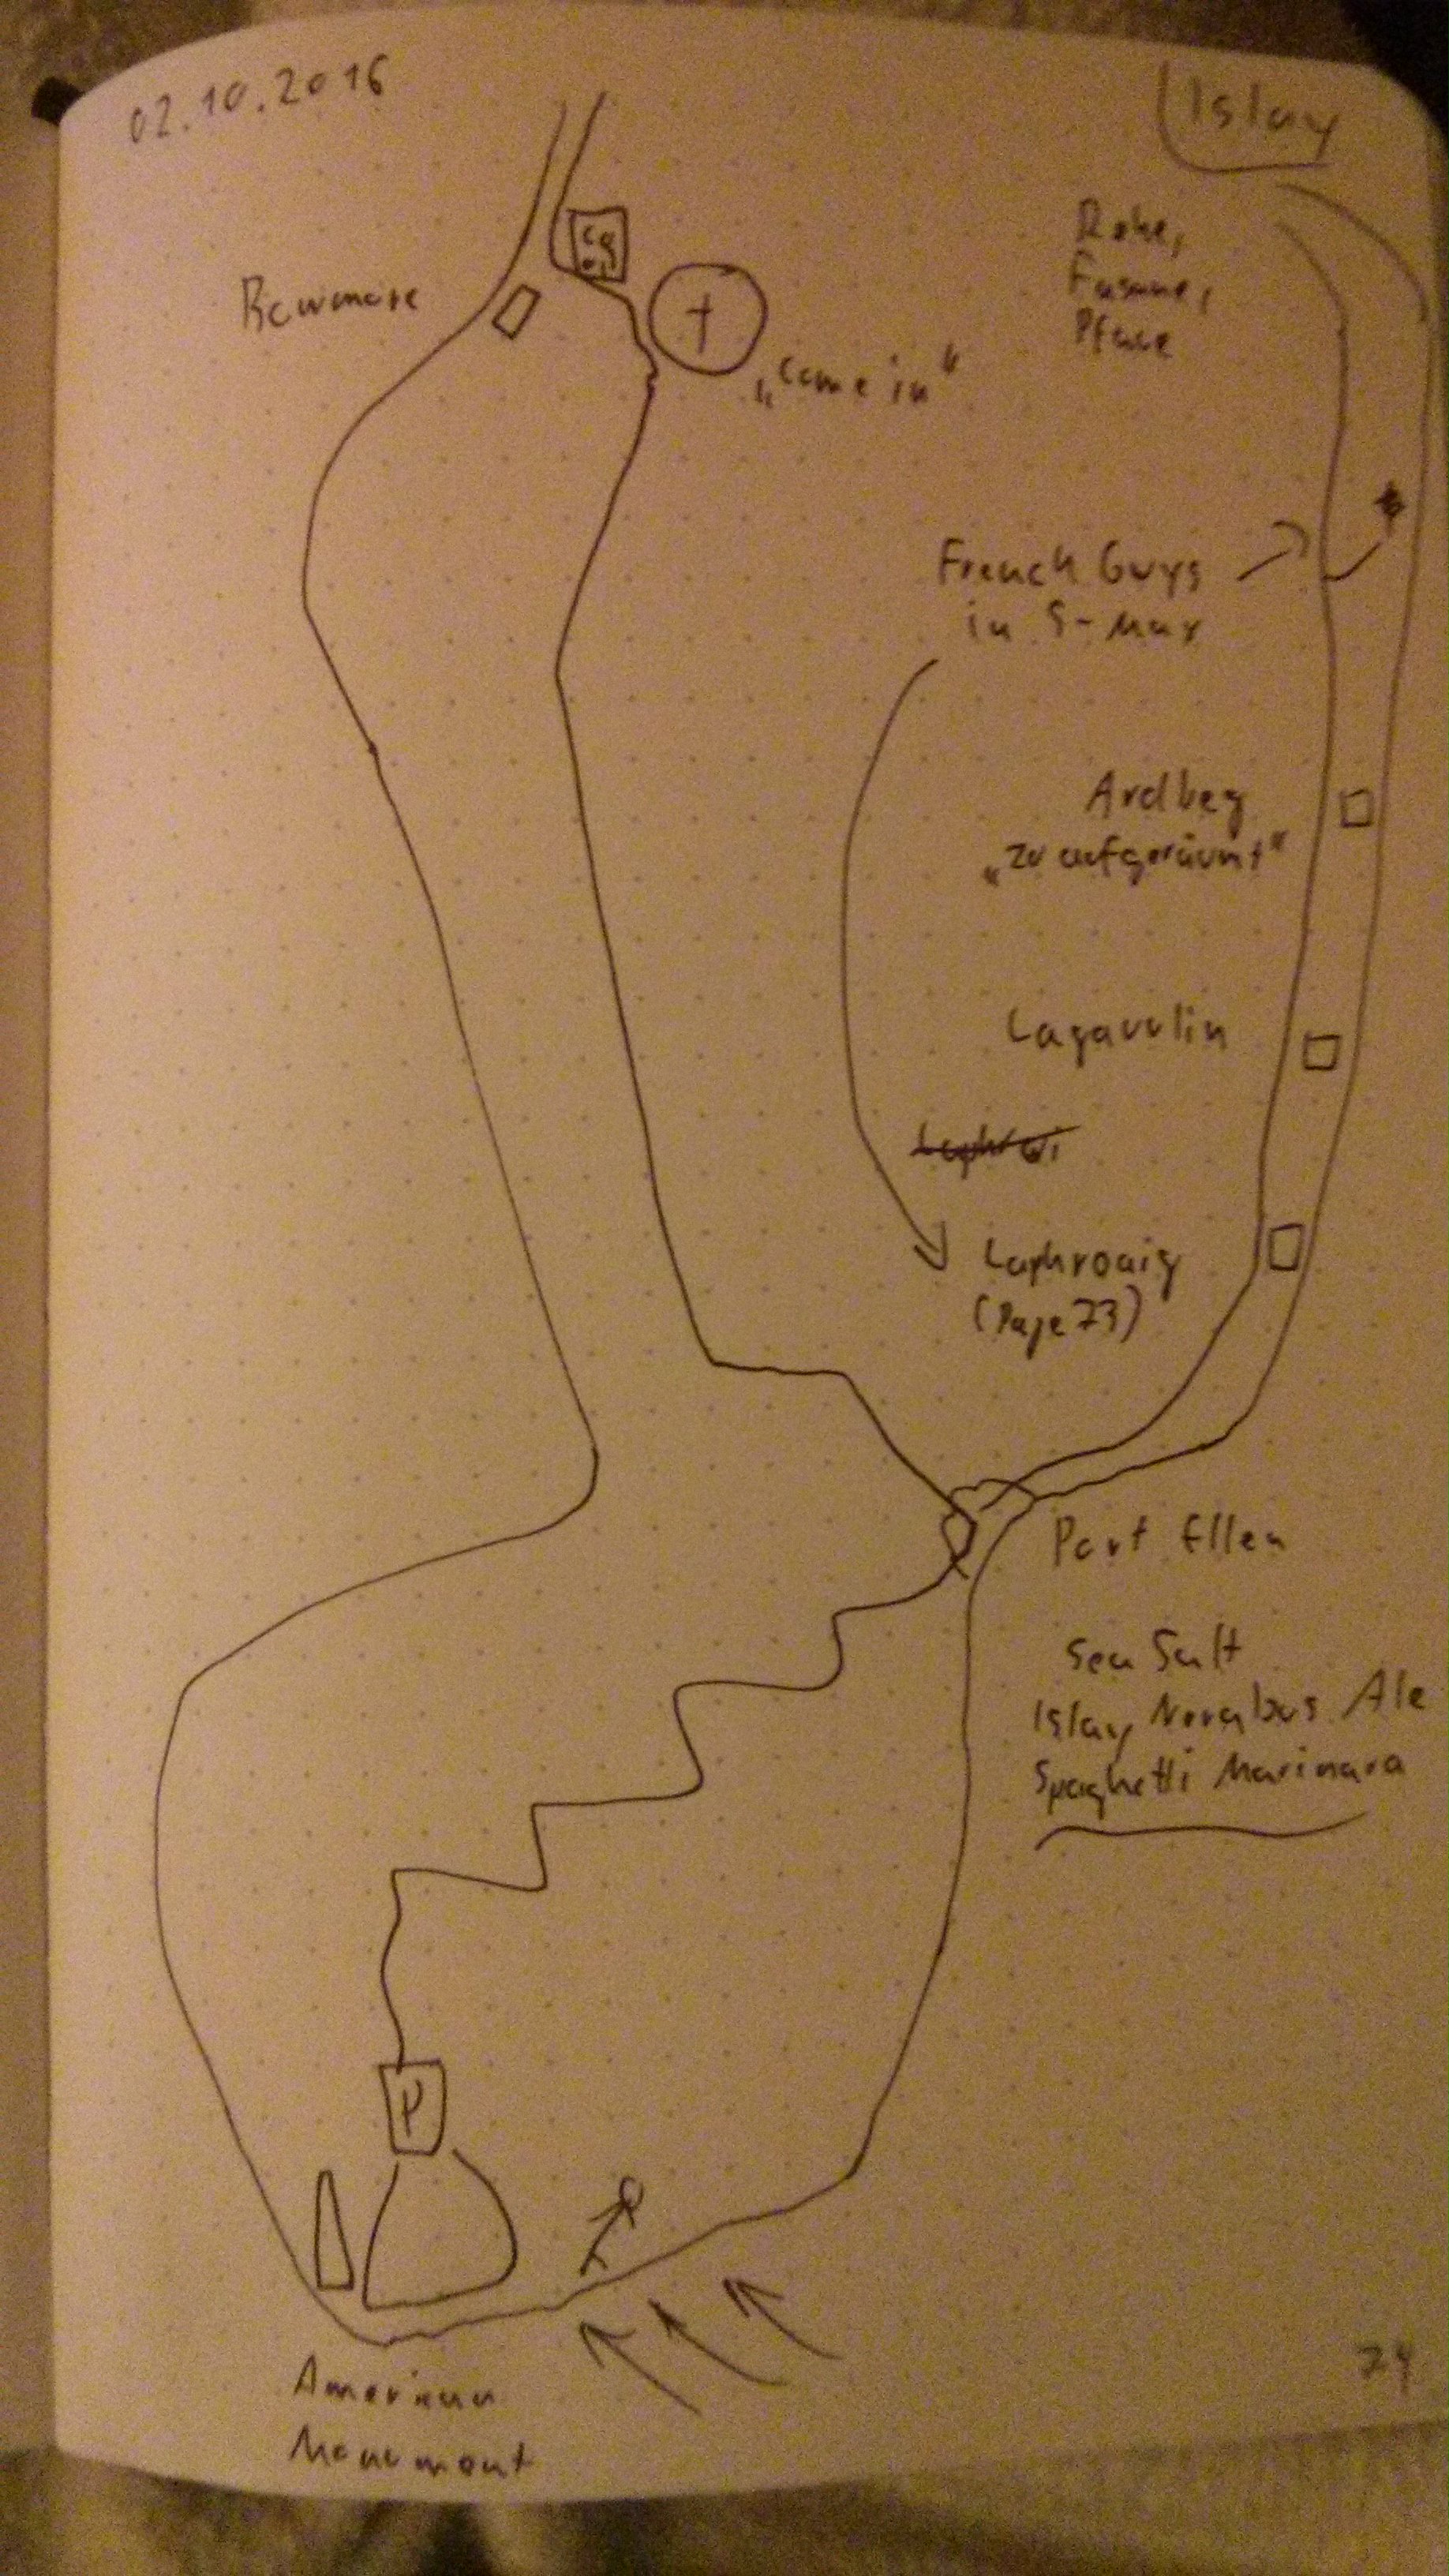 02.10.2016
Islay
Rehe,
Fasane,
Pfaue
Bowmore
CO
OP
„Come in"
French Guys
in S-Max
Ardbeg
„zu aufgeräumt"
Lagavulin
Laphroaig
(Page 73)
Port Ellen
Sea Salt
Islay Nerabus Ale
Spaghetti Marinara
P
American
Monument
74